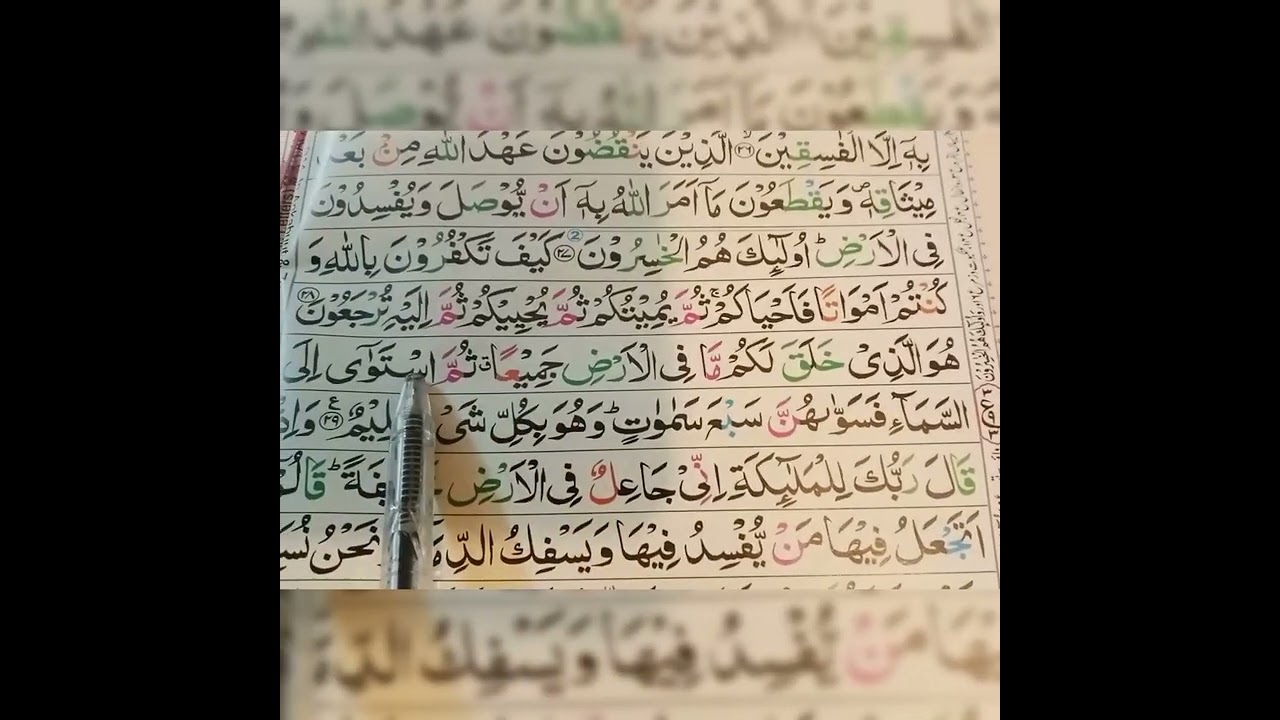 بِهٖۤ اِلَّا الْفٰسِقِيْنَ ۙ‏﴿۲۶﴾ الَّذِيْنَ يَنْقُضُوْنَ عَهْدَ اللّٰهِ مِنْۢ بَعْدِ
مِيْثَاقِهٖ ۪ وَيَقْطَعُوْنَ مَاۤ اَمَرَ اللّٰهُ بِهٖۤ اَنْ يُّوْصَلَ وَيُفْسِدُوْنَ
فِى الْاَرْضِ ؕ اُولٰٓئِكَ هُمُ الْخٰسِرُوْنَ ﴿۲۷﴾ كَيْفَ تَكْفُرُوْنَ بِاللّٰهِ وَ
كُنْتُمْ اَمْوَاتًا فَاَحْيَاكُمْ ۚ ثُمَّ يُمِيْتُكُمْ ثُمَّ يُحْيِيْكُمْ ثُمَّ اِلَيْهِ تُرْجَعُوْنَ ﴿۲۸﴾
هُوَ الَّذِىْ خَلَقَ لَكُمْ مَّا فِى الْاَرْضِ جَمِيْعًا ۗ ثُمَّ اسْتَوٰۤى اِلَى
السَّمَآءِ فَسَوّٰٮهُنَّ سَبْعَ سَمٰوٰتٍ ؕ وَهُوَ بِكُلِّ شَىْ لِيْمٌ ﴿۲۹﴾ وَاِذْ
قَالَ رَبُّكَ لِلْمَلٰٓئِكَةِ اِنِّىْ جَاعِلٌ فِى الْاَرْضِ فَةً ؕ قَالُوْۤا
اَتَجْعَلُ فِيْهَا مَنْ يُّفْسِدُ فِيْهَا وَيَسْفِكُ الدِّمَ نَحْنُ